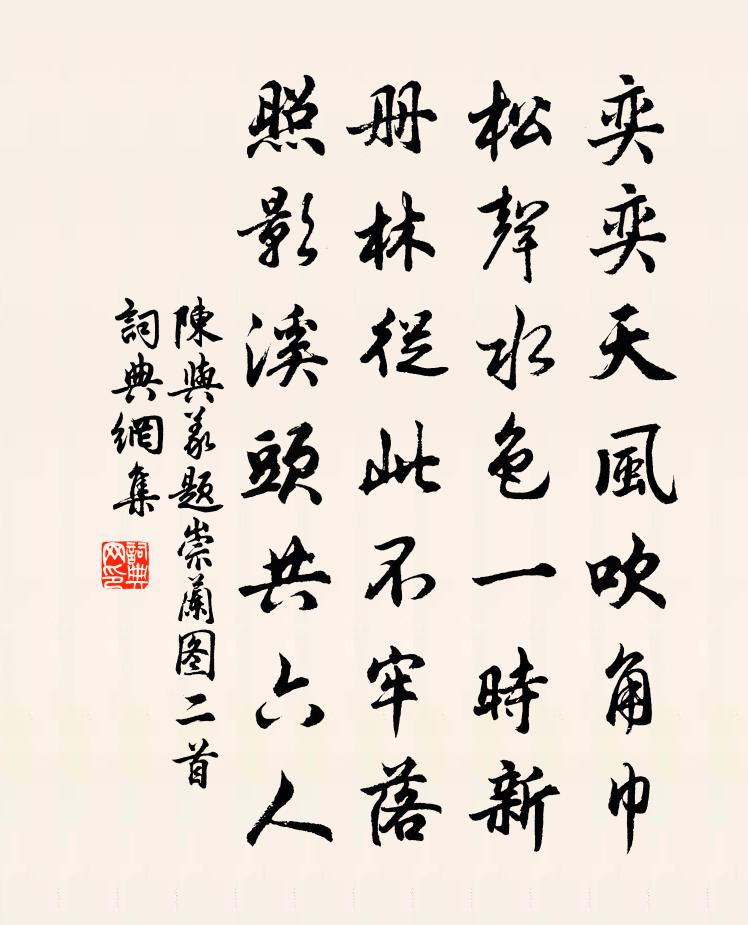 奕奕天風吹角巾
松聲水色一時新
冊林從此不牢落
照影溪頭共六人
陳與義題崇蘭图二首
詞典網集
詞典网印